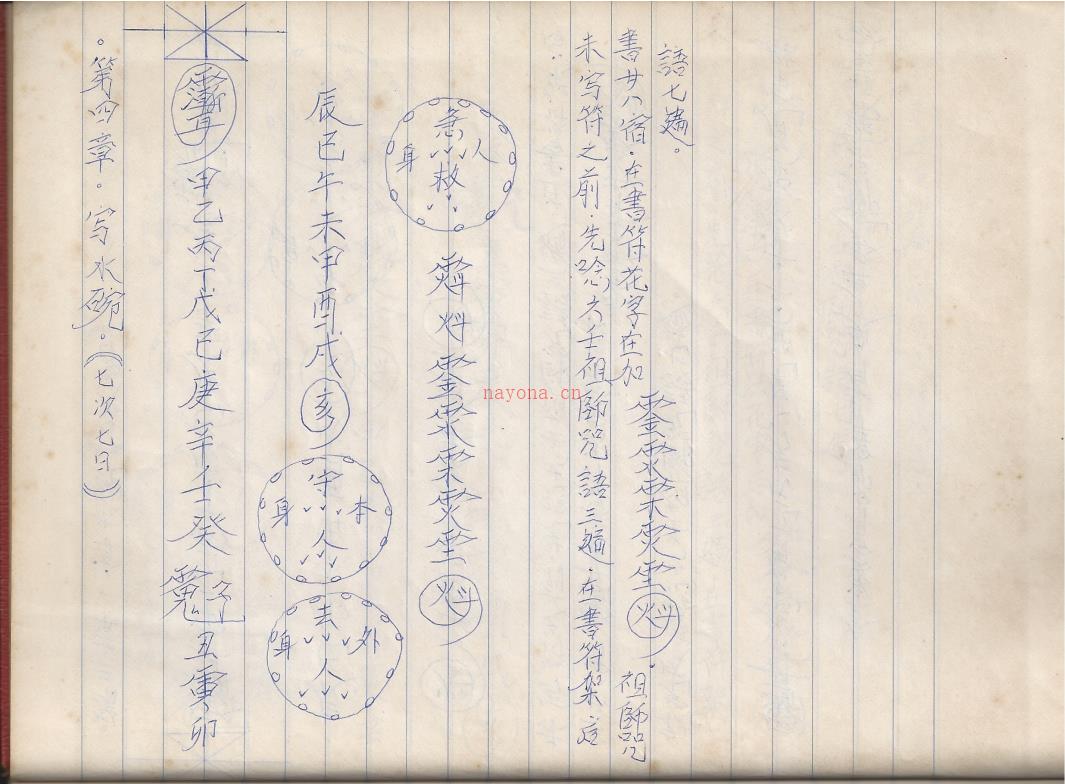 。第四章。写水碗。(七次七日)
甲乙丙丁戊己庚辛壬癸
子丑寅卯
辰巳午未甲酉戌亥
守
身 本
人
去
身 外
人
急
身 人
救
未写符之前.先唸六壬祖師咒語三遍.在書符架座
書廿八宿.在書符花字在加
祖師咒
語七遍。
nayona.cn